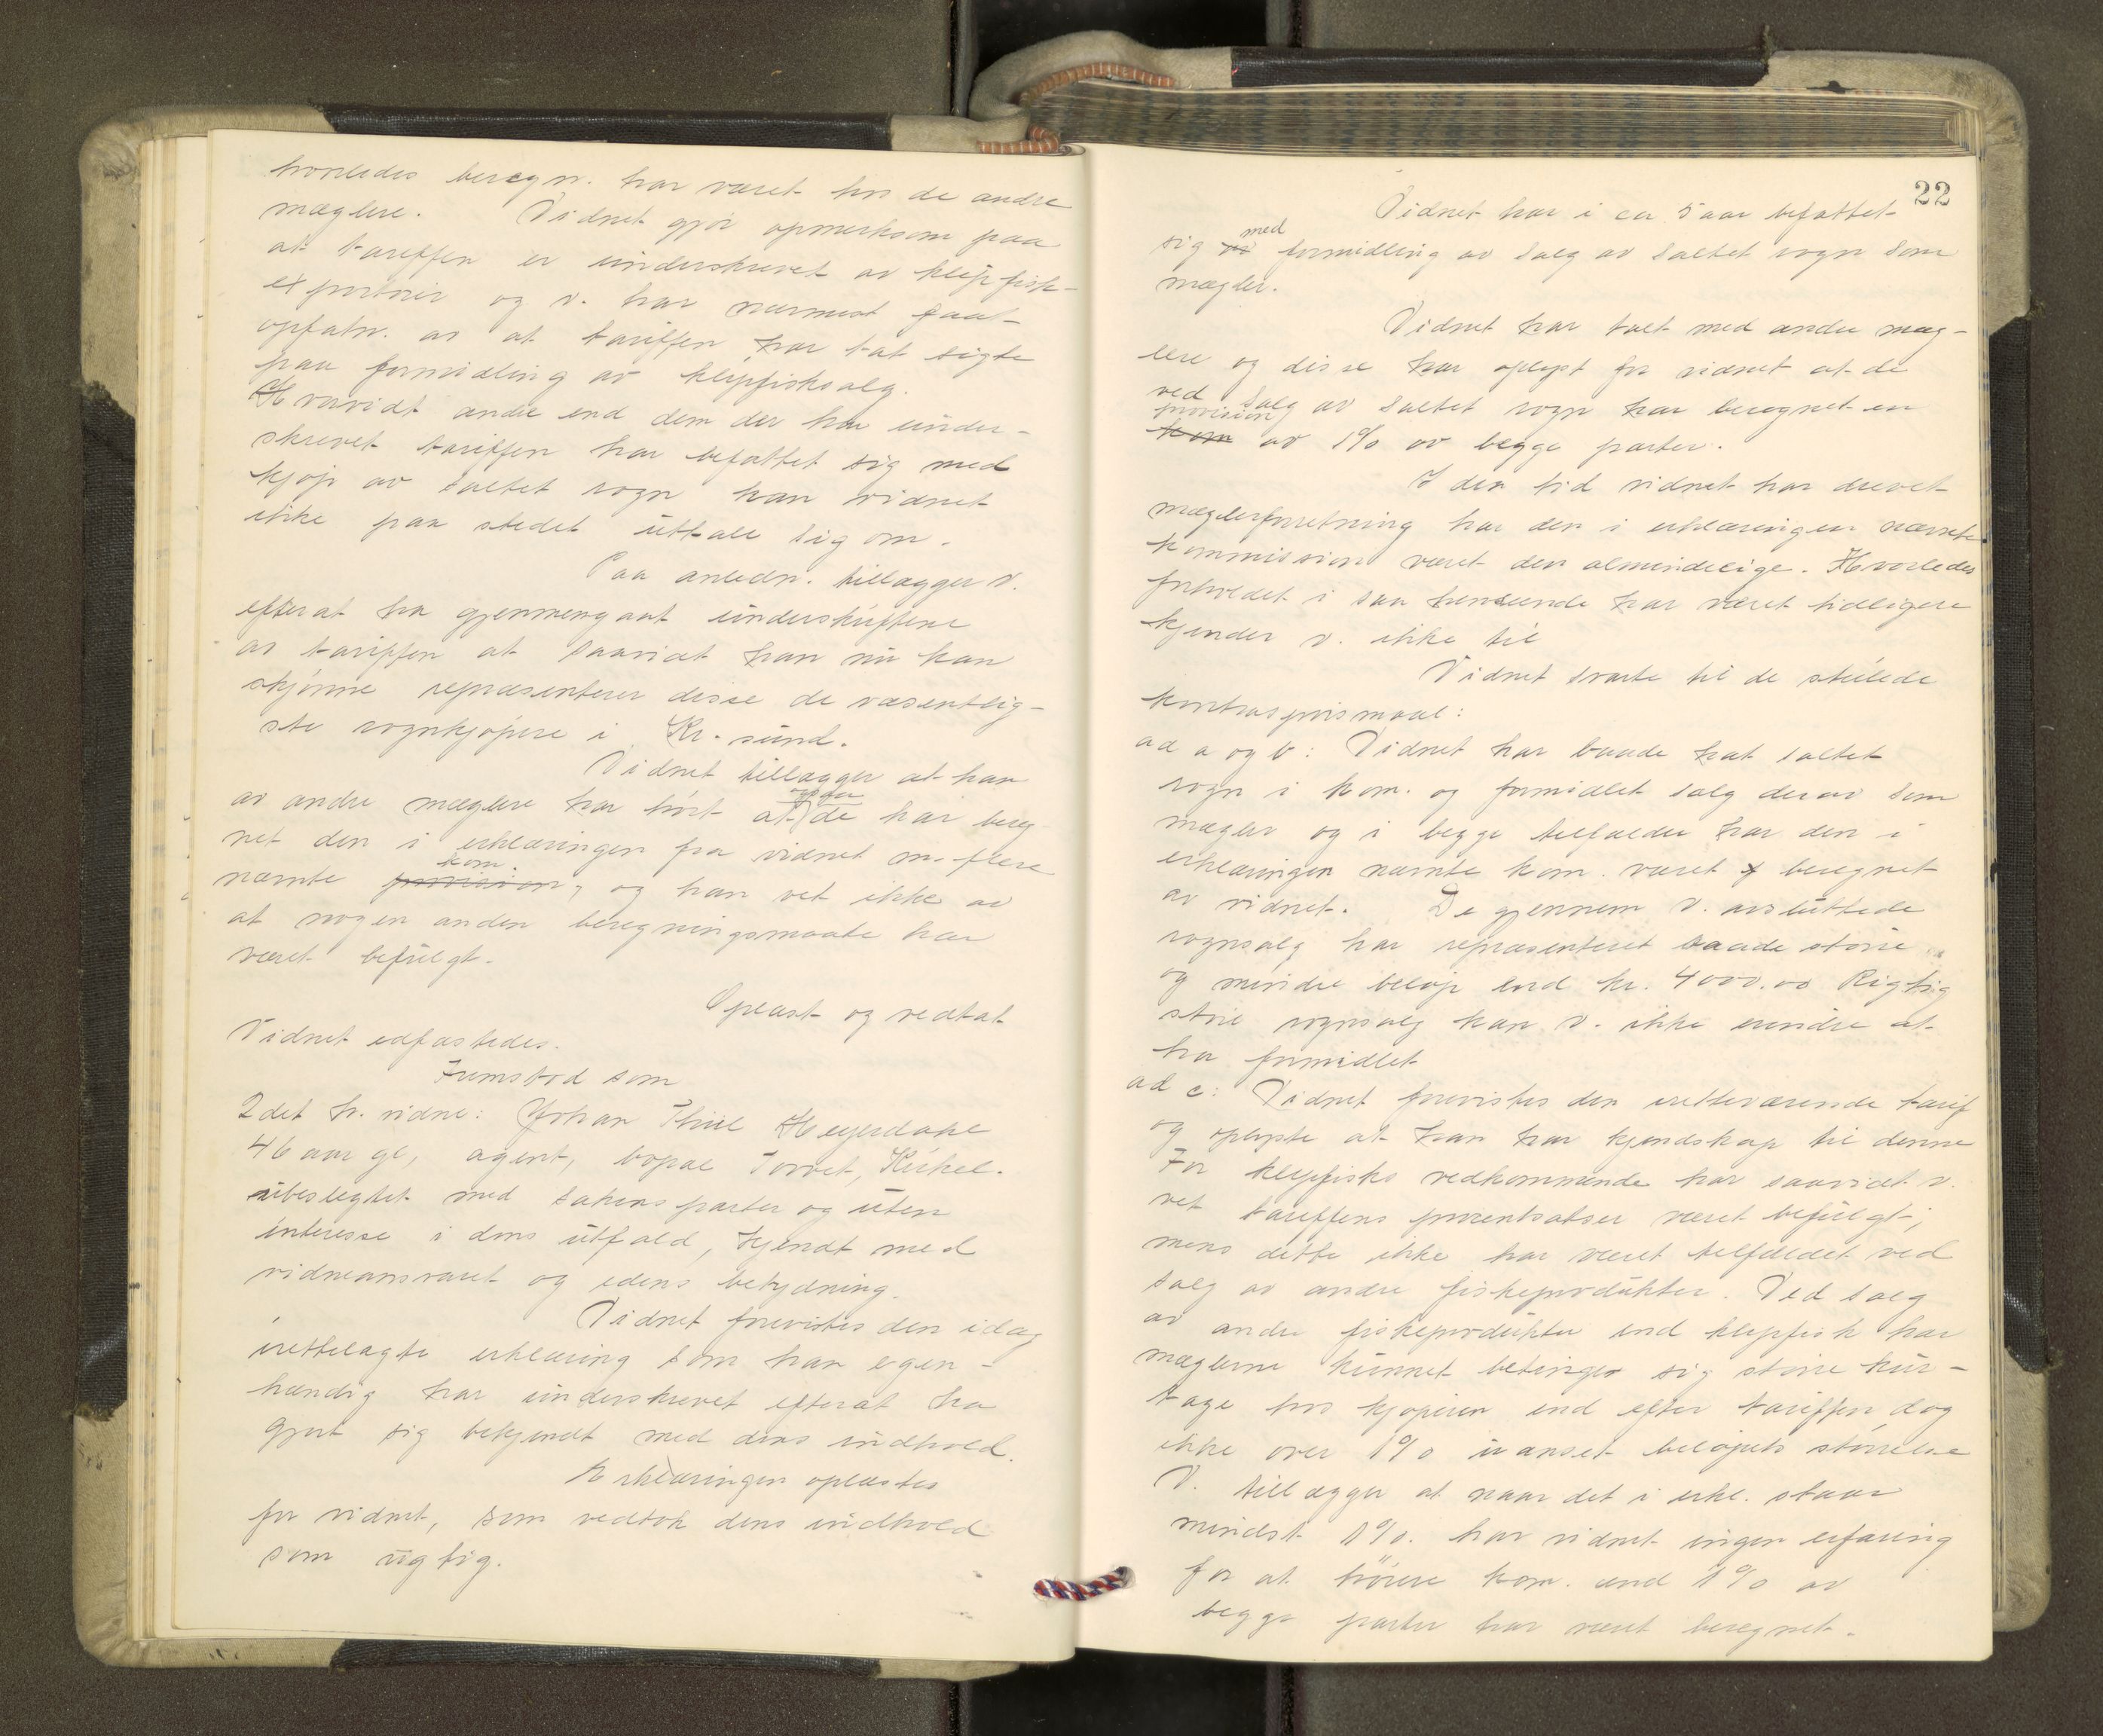 hvorledes beregn. har været hos de andre
mæglere. Vidnet gjør opmerksom paa
at tariffen er underskrevet av klipfisk-
exportører og v. har nærmest faat
opfatn. av at tariffen har tat sigte
paa formidling av klipfisksalg.
Hvorvidt andre end dem der har under-
skrevet tariffen har befattet sig med
kjøp av saltet rogn kan vidnet
ikke paa stedet uttale sig om.
Paa anledn. tillægger v.
efterat ha gjennemgaat underskriftene
av tariffen at saavidt han nu kan
skjønne repræsenterer disse de væsentlig-
ste rognkjøpere i Kr.sund.
Vidnet tillægger at han
av andre mæglere har hørt at ogsaa de har bereg
net den i erklæringen fra vidnet m. flere
nævnte provision kom., og han vet ikke av
at nogen anden beregningsmaate har
været befulgt.
Oplæst og vedtat
Vidnet edfæstedes.
Fremstod som
2det h. vidne: Johan Thiil Heyerdahl
46 aar gl, agent, bopæl Torvet, Kirkel.
ubeslegtet med sakens parter og uten
interesse i dens utfald, kjendt med
vidneansvaret og edens betydning.
Vidnet forevistes den idag
irettelagte erklæring som han egen-
hændig har underskrevet efterat ha
gjort sig bekjendt med dens indhold.
Erklæringen oplæstes
for vidnet, som vedtok dens indhold
som rigtig.
22
Vidnet har i ca 5 aar befattet
sig med formidling av salg av saltet rogn som
mægler.
Vidnet har talt med andre mæg-
lere og disse har oplyst for vidnet at de
ved salg av saltet rogn har beregnet en
provision kom av 1% av begge parter.
I den tid vidnet har drevet
mæglerforretning har den i erklæringen nævnte
kommission været den almindelige. Hvorledes
forholdet i saa henseende har været tidligere
kjender v. ikke til
Vidnet svarte til de stillede
kontraspørsmaal:
ad a og b: Vidnet har baade hat saltet
rogn i kom. og formidlet salg derav som
mægler og i begge tilfælder har den i
erklæringen nævnte kom. været beregnet
av vidnet. De gjennem v. avsluttede
rognsalg har repræsenteret baade større
og mindre beløp end kr. 4000.00 Rigtig
store rognsalg kan v. ikke erindre at
ha formidlet
ad c: Vidnet forevistes den iretteværende tarif
og oplyste at han har kjendskap til denne
For klipfisks vedkommende har saavidt v.
vet tariffens procentsatser været befulgt;
mens dette ikke har været tilfældet ved
salg av andre fiskeprodukter. Ved salg
av andre fiskeprodukter end klipfisk har
mæglerne kunnet betinget sig større kur-
tage hos kjøperen end efter tariffen dog
ikke over 1% uanset beløpets størrelse
V. tillægger at naar det i erkl. staar
mindst 1%. har vidnet ingen erfaring
for at høiere kom. end 1% av
begge parter har været beregnet.